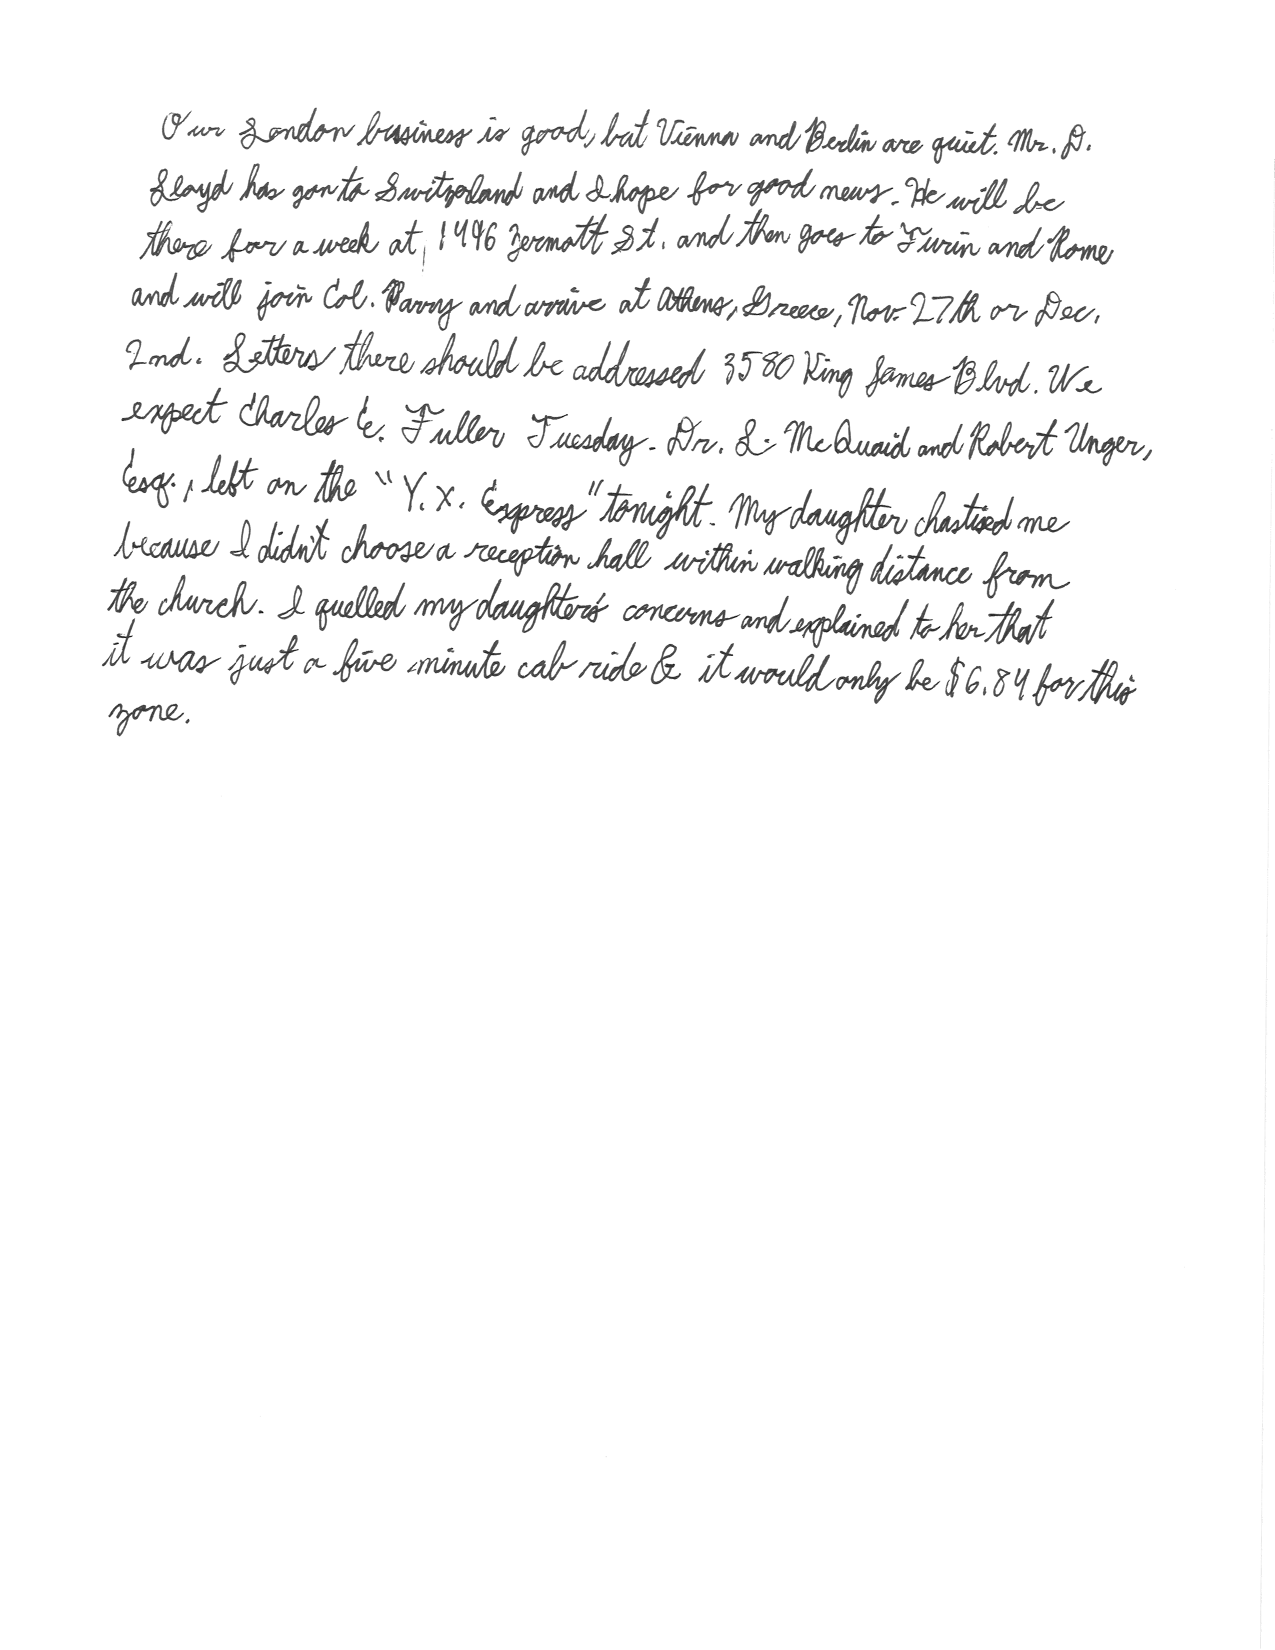 Our London business is good, but Vienna and Berlin are quiet. Mr. D.
Lloyd has gon to Switzerland and I hope for good news. He will be
there for a week at, 1496 Zermott St. and then goes to Turin and Rome
and will join Col. Parry and arrive at Athens, Greece, Nov. 27th or Dec.
2nd. Letters there should be addressed 3580 King James Blvd. We
expect Charles E. Fuller Tuesday. Dr. L. McQuaid and Robert Unger,
Esq., left on the "Y. X. Express" tonight. My daughter chastised me
because I didn't choose a reception hall within walking distance from
the church. I quelled my daughter's concerns and explained to her that
it was just a five minute cab ride & it would only be $6.84 for this
zone.